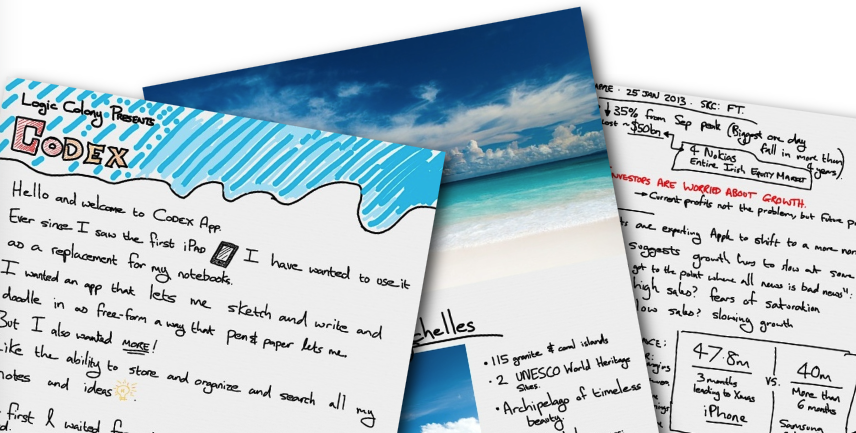 Logic Colony PRESENTS
CODEX
Hello and welcome to CODEX App.
Ever since I saw the first iPad I have wanted to use it
as a replacement for my notebooks.
I wanted an app that lets me sketch and write and
doodle in as free-form a way that pen & paper lets me.
But I also wanted MORE!
Like the ability to store and organize and search all my
notes and ideas
first & waited
chelles
• 115 granite & coral islands
• 2 UNESCO World Heritage
Sites.
• Archipelago of timeless
beauty.
25 JAN 2013 · SRC: FT.
↓ 35% from Sep peak (Biggest one day
fall in more than
4 years)
lost ~$50bn
4 Nokias
Entire Irish EQUITY MARKET
INVESTORS ARE WORRIED ABOUT GROWTH.
→ Current profits not the problem, but future
are expecting Apple to shift to a more
suggests growth has to slow at some
get to the point where all news is bad news":
high sales? fears of saturation
low sales? slowing growth
47.8m
3 months
leading to Xmas
iPhone
vs.
40m
More than
6 months
Samsung